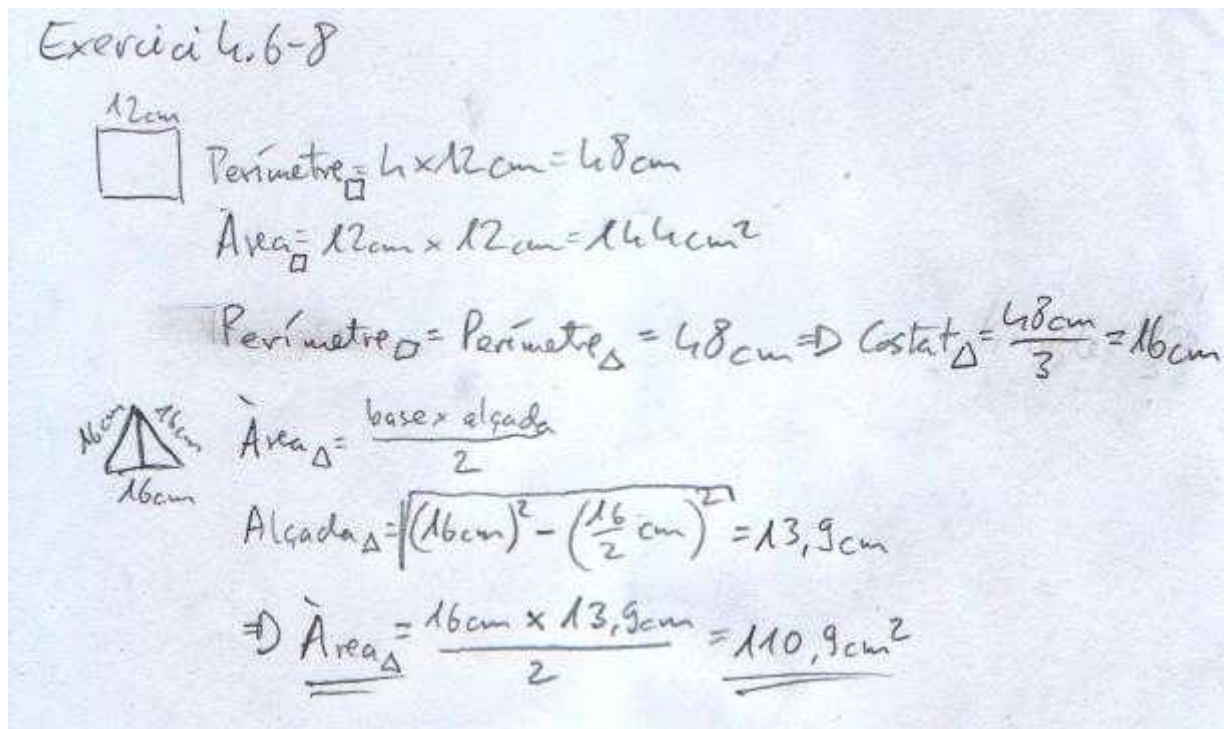 Exercici 4.6-8
12cm
Perímetre□ = 4 x 12 cm = 48 cm
Àrea□ = 12cm x 12 cm = 144cm²
Perímetre□ = Perímetre△ = 48 cm ⇒ Costat△ = 48cm/3 = 16cm
16cm 16cm
16cm
Àrea△ = base x alçada/2
Alçada△ = √((16cm)² - (16/2 cm)²) = 13,9cm
⇒ Àrea△ = 16cm x 13,9cm/2 = 110,9cm²